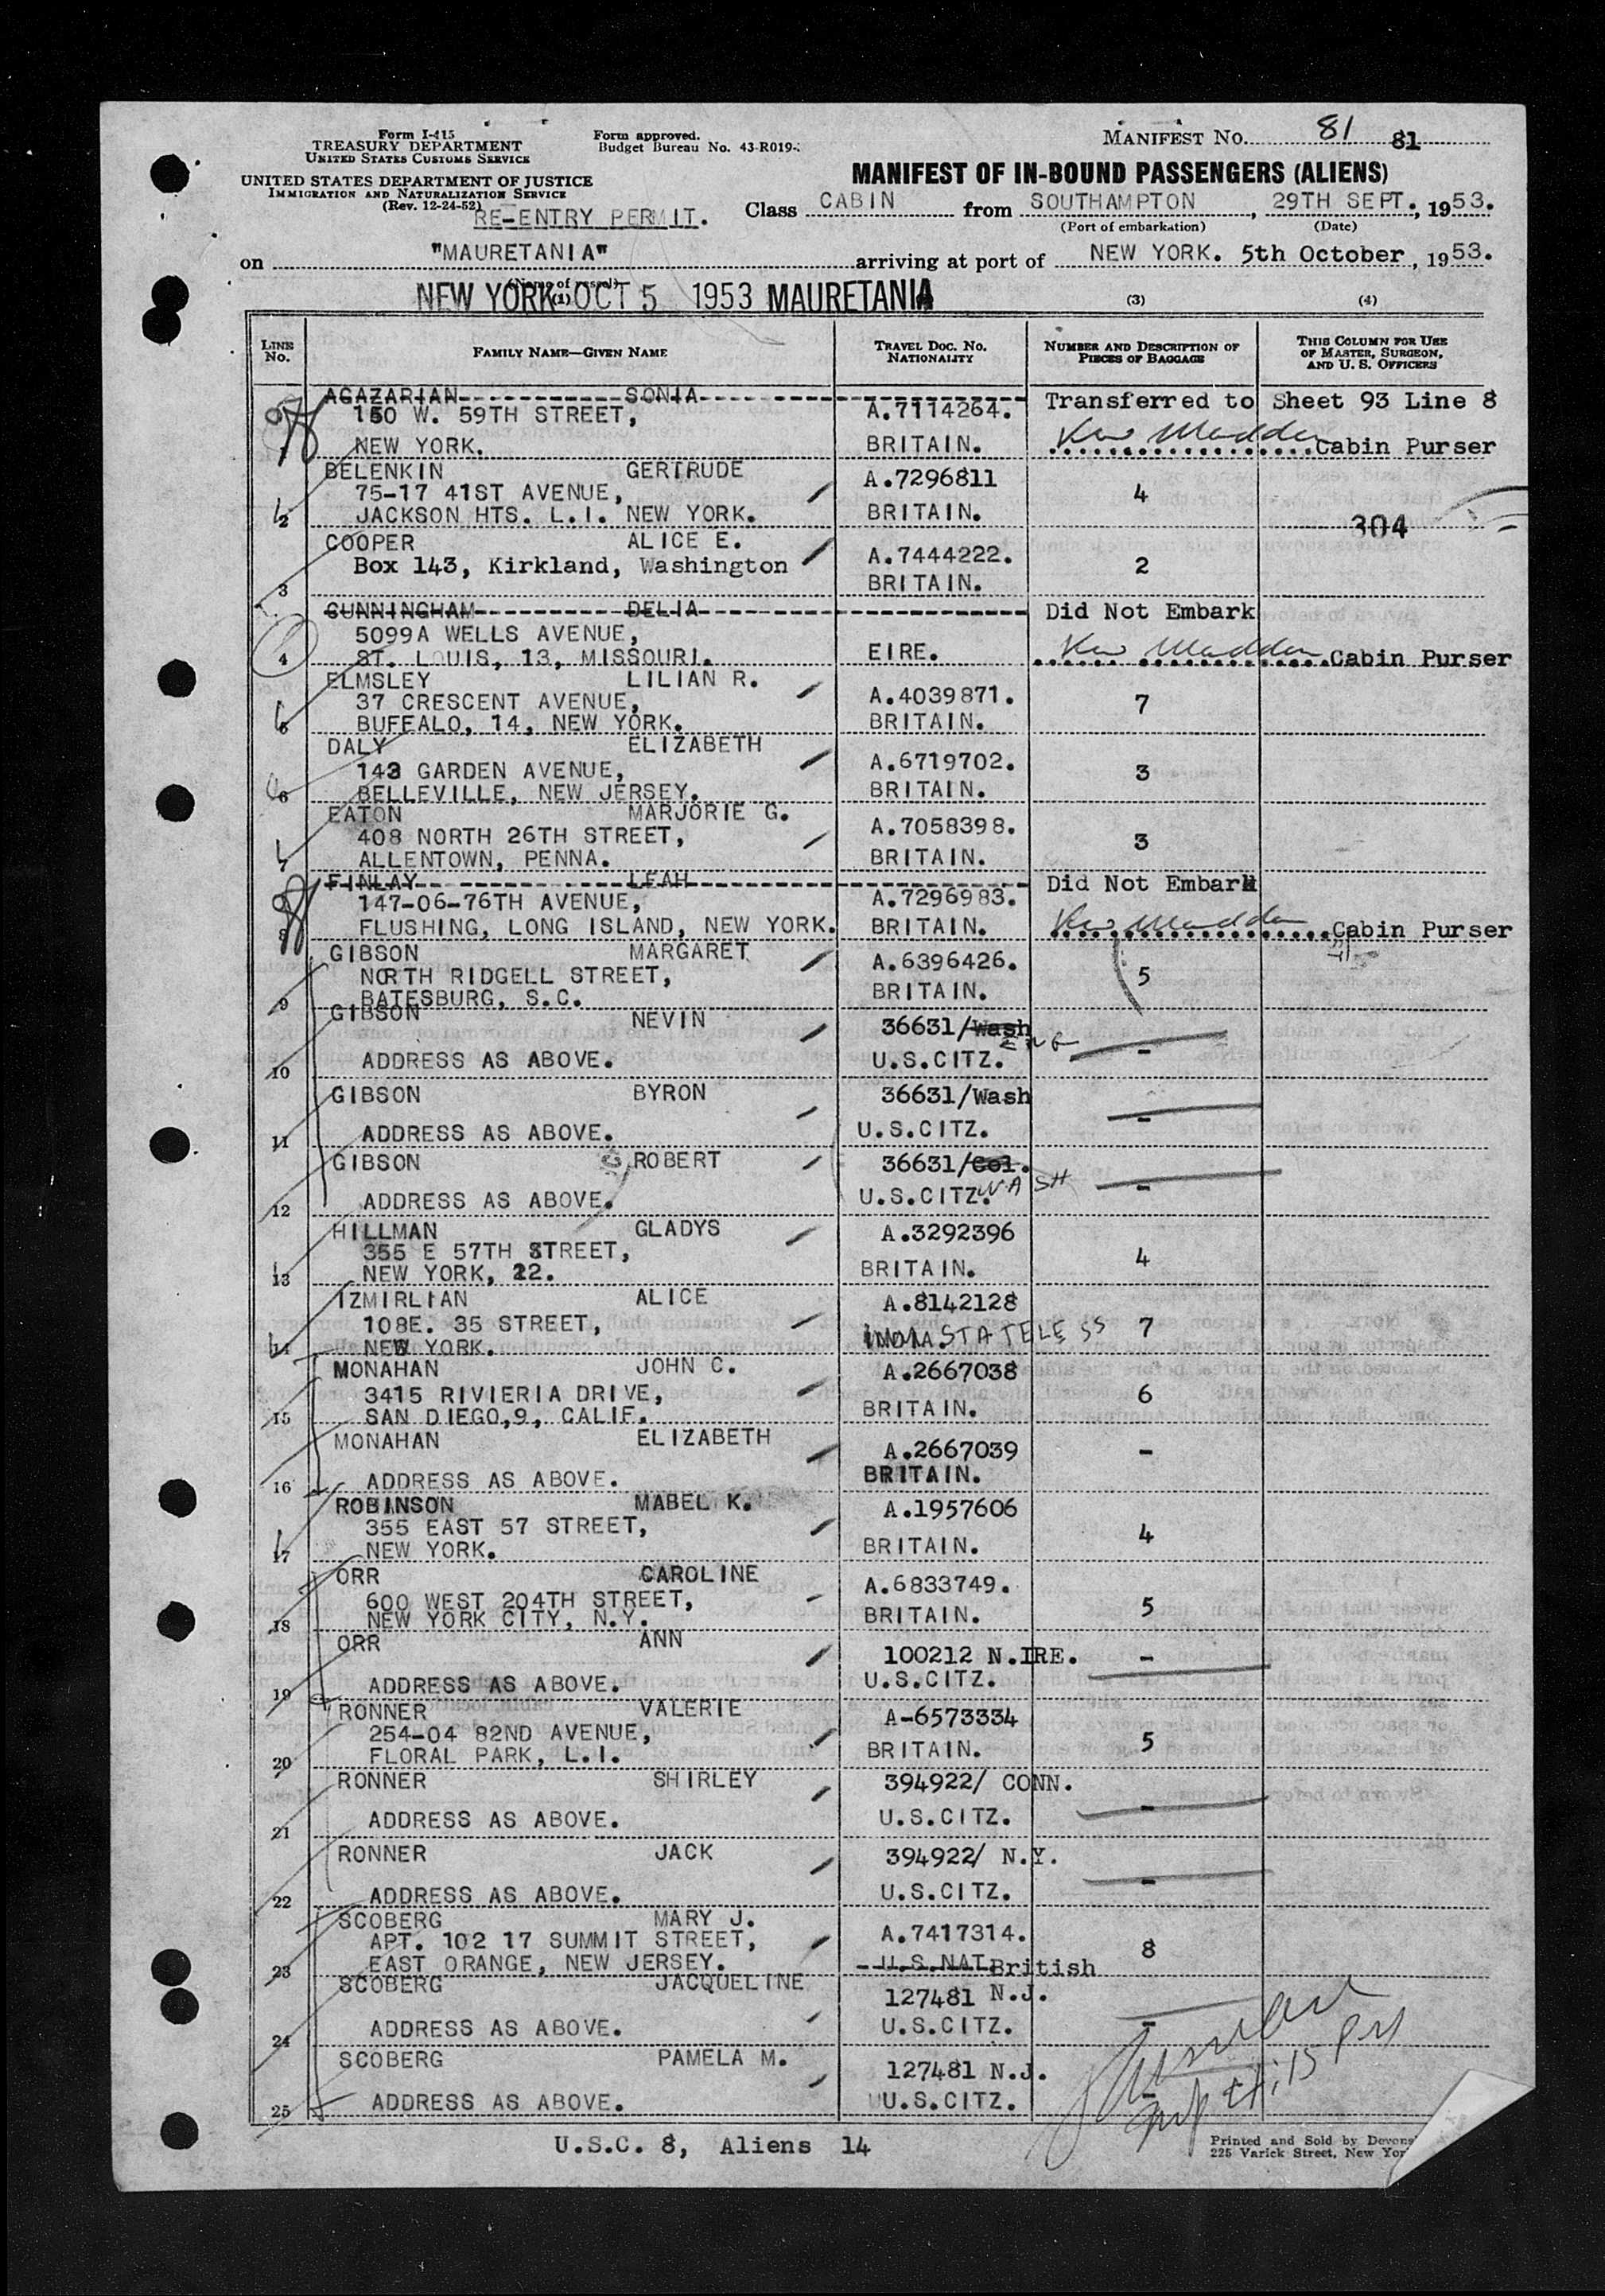 Form I-415
TREASURY DEPARTMENT
UNITED STATES CUSTOMS SERVICE
UNITED STATES DEPARTMENT OF JUSTICE
IMMIGRATION AND NATURALIZATION SERVICE
(Rev. 12-24-52)
RE-ENTRY PERMIT.
Form approved.
Budget Bureau No. 43-R019-
MANIFEST NO. 81 81
MANIFEST OF IN-BOUND PASSENGERS (ALIENS)
Class CABIN from SOUTHAMPTON, 29TH SEPT., 1953.
(Port of embarkation) (Date)
on "MAURETANIA" arriving at port of NEW YORK. 5th October, 1953.
(Name of vessel)
NEW YORK OCT 5 1953 MAURETANIA
(1) (3) (4)
LINE No. FAMILY NAME—GIVEN NAME TRAVEL DOC. NO. NATIONALITY NUMBER AND DESCRIPTION OF PIECES OF BAGGAGE THIS COLUMN FOR USE OF MASTER, SURGEON, AND U. S. OFFICERS
AGAZARIAN SONIA Transferred to Sheet 93 Line 8
150 W. 59TH STREET, A.7114264.
NEW YORK. BRITAIN. Ken Madden Cabin Purser
BELENKIN GERTRUDE A.7296811
75-17 41ST AVENUE, 4
2 JACKSON HTS. L.I. NEW YORK. BRITAIN. 304
COOPER ALICE E. A.7444222.
Box 143, Kirkland, Washington 2
3 BRITAIN.
CUNNINGHAM DELIA Did Not Embark
5099A WELLS AVENUE,
4 ST. LOUIS, 13, MISSOURI. EIRE. Ken Madden Cabin Purser
ELMSLEY LILIAN R. A.4039871.
37 CRESCENT AVENUE, 7
5 BUFFALO, 14, NEW YORK. BRITAIN.
DALY ELIZABETH A.6719702.
143 GARDEN AVENUE, 3
6 BELLEVILLE, NEW JERSEY. BRITAIN.
EATON MARJORIE G. A.7058398.
408 NORTH 26TH STREET, 3
7 ALLENTOWN, PENNA. BRITAIN.
FINLAY LEAH Did Not Embark
147-06-76TH AVENUE, A.7296983.
8 FLUSHING, LONG ISLAND, NEW YORK. BRITAIN. Ken Madden Cabin Purser
GIBSON MARGARET A.6396426.
NORTH RIDGELL STREET, 5
9 BATESBURG, S.C. BRITAIN.
GIBSON NEVIN 36631/Wash
ENG
10 ADDRESS AS ABOVE. U.S.CITZ. -
GIBSON BYRON 36631/Wash
11 ADDRESS AS ABOVE. U.S.CITZ. -
GIBSON G. ROBERT 36631/Col.
12 ADDRESS AS ABOVE. U.S.CITZ. WASH -
HILLMAN GLADYS A.3292396
355 E 57TH STREET, 4
13 NEW YORK, 22. BRITAIN.
IZMIRLIAN ALICE A.8142128
108E. 35 STREET, INDIA. STATELESS 7
14 NEW YORK.
MONAHAN JOHN C. A.2667038
3415 RIVIERIA DRIVE, 6
15 SAN DIEGO,9, CALIF. BRITAIN.
MONAHAN ELIZABETH A.2667039 -
16 ADDRESS AS ABOVE. BRITAIN.
ROBINSON MABEL K. A.1957606
355 EAST 57 STREET, 4
17 NEW YORK. BRITAIN.
ORR CAROLINE A.6833749.
600 WEST 204TH STREET, 5
18 NEW YORK CITY, N.Y. BRITAIN.
ORR ANN 100212 N.IRE. -
19 ADDRESS AS ABOVE. U.S.CITZ.
RONNER VALERIE A-6573334
254-04 82ND AVENUE, 5
20 FLORAL PARK, L.I. BRITAIN.
RONNER SHIRLEY 394922/ CONN.
21 ADDRESS AS ABOVE. U.S.CITZ. -
RONNER JACK 394922/ N.Y.
22 ADDRESS AS ABOVE. U.S.CITZ. -
SCOBERG MARY J. A.7417314.
APT. 102 17 SUMMIT STREET, 8
23 EAST ORANGE, NEW JERSEY. U.S.NAT. British
SCOBERG JACQUELINE 127481 N.J.
24 ADDRESS AS ABOVE. U.S.CITZ. -
SCOBERG PAMELA M. 127481 N.J.
25 ADDRESS AS ABOVE. U.S.CITZ. -
U.S.C. 8, Aliens 14
Printed and Sold by Devons
225 Varick Street, New Yor